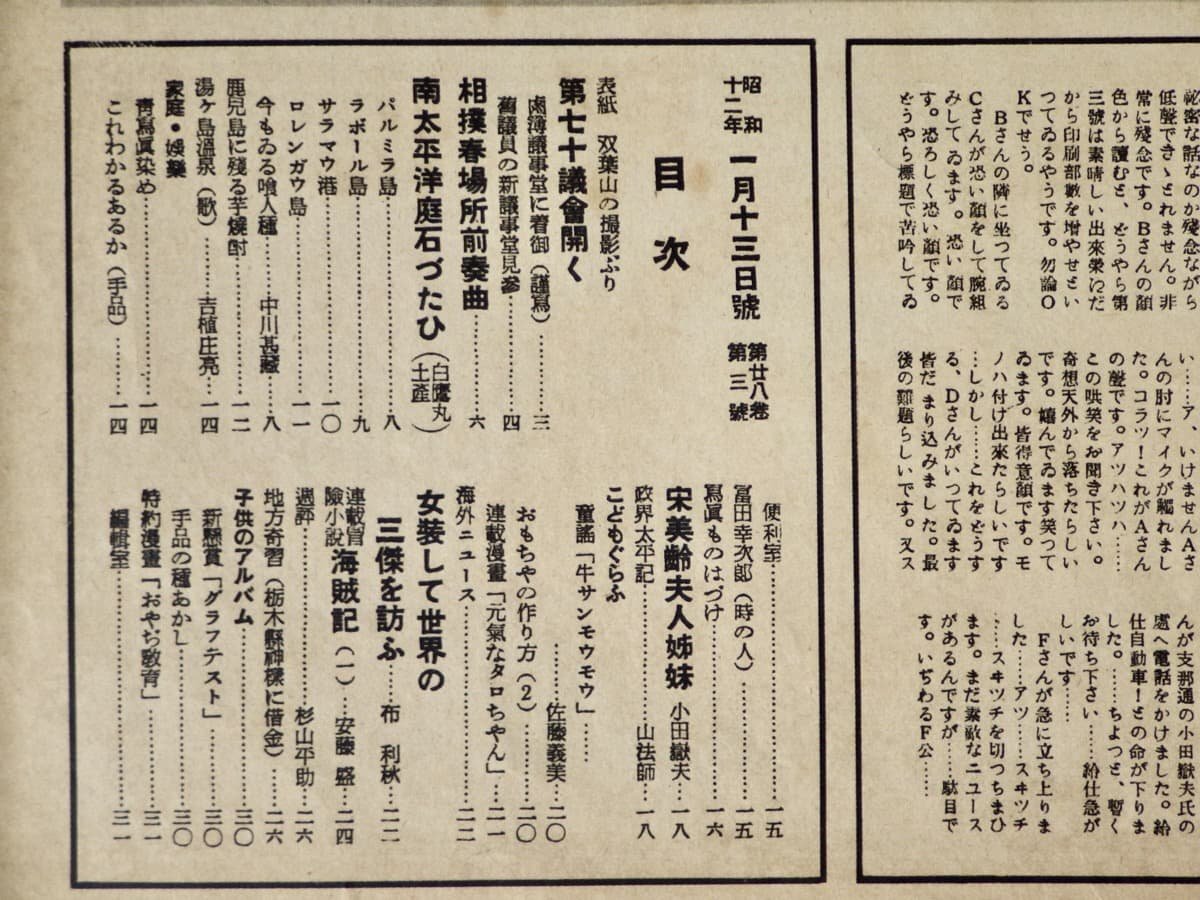 祕密な話なのか残念ながら
低聲できゝとれません。非
常に殘念です。Bさんの顔
色から讀むと、どうやら第
三號は素晴しい出來榮だ
から印刷部數を増やせとい
つてゐるやうです。勿論O
Kでせう。
Bさんの隣に坐つてゐる
Cさんが恐い顔をして腕組
みしてゐます。恐い顔で
す。恐ろしく恐い顔です。
どうやら標題で苦吟してゐ
い……ア、いけませんAさ
んの肘にマイクが觸れまし
た。コラツ！これがAさん
の聲です。アツハツハ……
この哄笑をお聞き下さい。
奇想天外から落ちたらしい
です。嬉んでゐます笑つて
ゐます。皆得意顔です。モ
ノハ付け出來たらしいです
…しかし……これをどうす
る、Dさんがいつてゐます
皆だまり込みました。最
後の難題らしいです。又ス
んが支那通の小田嶽夫氏の
處へ電話をかけました。給
仕自動車！との命が下りま
した。……ちよつと、暫く
お待ち下さい……給仕急が
しいです……
Fさんが急に立ち上りま
した……アツ……スヰツチ
……スヰツチを切つちまひ
ます。まだ素敵なニユース
があるんですが……駄目で
す。いぢわるF公……
昭和十二年 一月十三日號 第廿八卷 第三號
目次
表紙 双葉山の撮影ぶり
第七十議會開く
鹵簿議事堂に着御（謹寫）…………三
舊議員の新議事堂見參…四
相撲春場所前奏曲…………六
南太平洋庭石づたひ（白鷹丸土產）
パルミラ島…………八
ラボール島…………九
サラマウ港…………一〇
ロレンガウ島…………一一
今もゐる喰人種…………中川甚藏…八
鹿兒島に殘る芋燒酎…………一二
湯ケ島溫泉（歌）……吉植庄亮…一四
家庭・娛樂
靑寫眞染め…………一四
これわかるあるか（手品）…………一四
便利室…………一五
富田幸次郎（時の人）…………一五
寫眞ものはづけ…………一六
宋美齡夫人姊妹 小田嶽夫…一八
政界太平記…………山法師…一八
こどもぐらふ
童謠「牛サンモウモウ」……
……佐藤義美…二〇
おもちやの作り方（2）…………二〇
連載漫畫「元氣なタロちやん」…二一
海外ニュース…………二二
女裝して世界の
三傑を訪ふ……布 利秋…二二
連載冒險小說 海賊記（一）…安藤 盛…二四
週評…………杉山平助…二六
地方奇習（栃木縣神樣に借金）……二六
子供のアルバム…………三〇
新懸賞「グラフテスト」…………三〇
手品の種あかし…………三〇
特約漫畫「おやぢ敎育」…………三一
編輯室…………三一